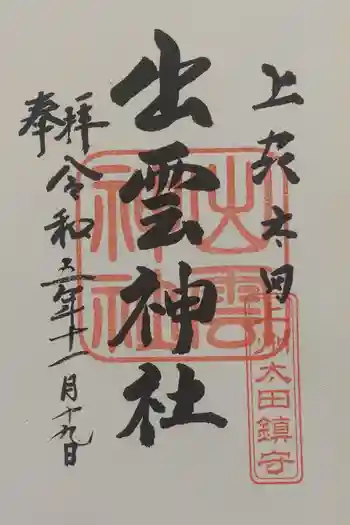 上州太田
出雲神社
奉拝
令和五年十一月十九日
出雲
神社
上州太田鎮守